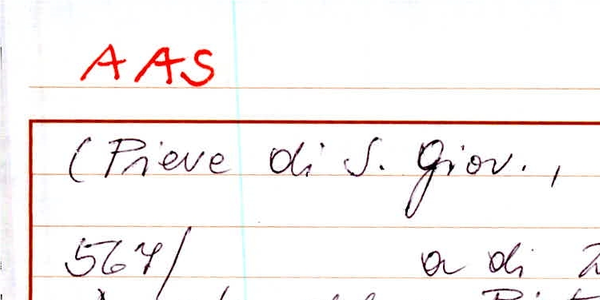 AAS
(Pieve di S. Giov.,
567/ a di 2